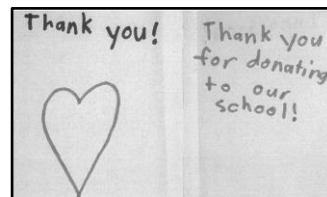 Thank you!
Thank you
for donating
to our
school!